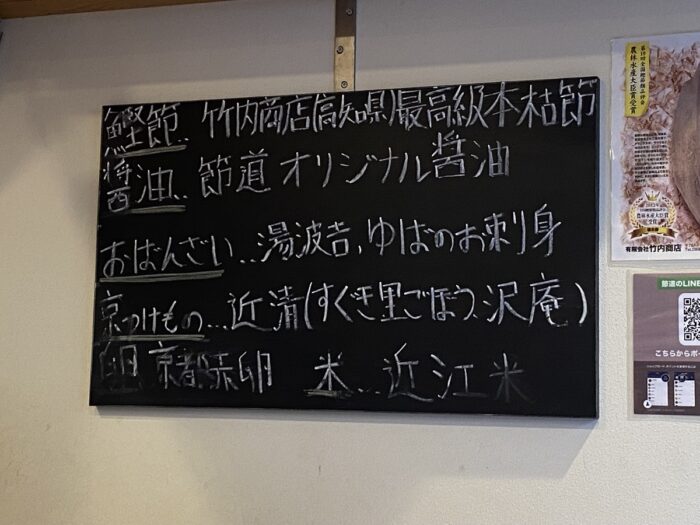 鰹節‥竹内商店(高知県)最高級本枯節
醤油‥節道オリジナル醤油
おばんざい‥湯波吉、ゆばのお刺身
京つけもの…近清(すぐき里ごぼう、沢庵)
卵 京都赤卵 米…近江米
農林水産大臣賞受賞
農林水産大臣賞
受賞
有限会社 竹内商店
節道のLINE
こちらからポ